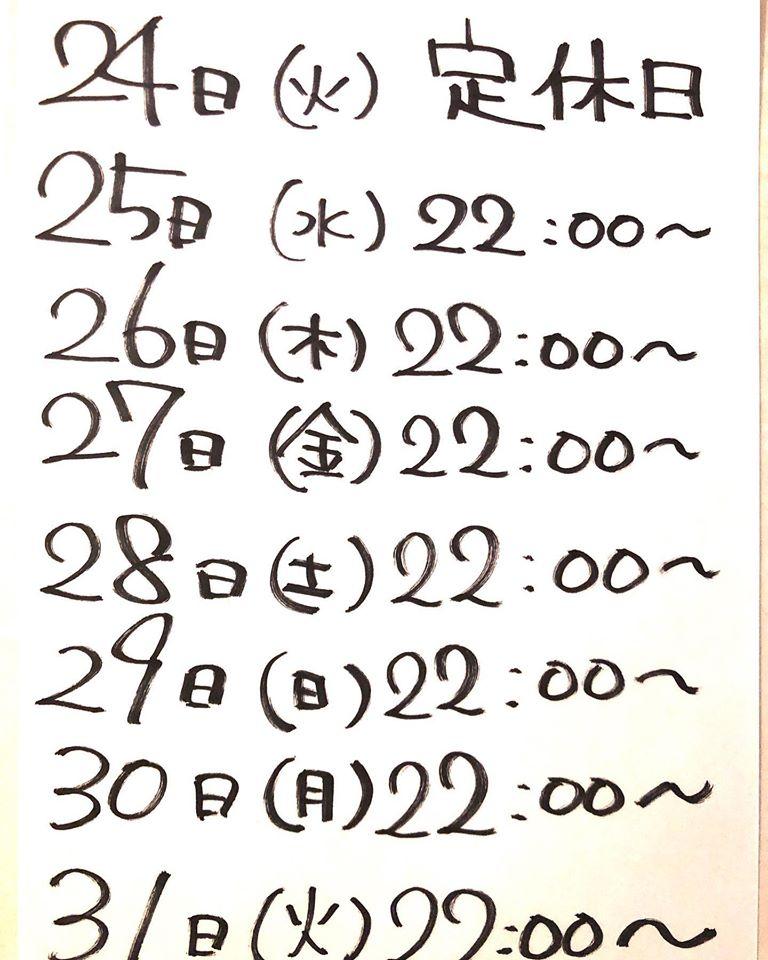 24日(火) 定休日
25日(水) 22:00〜
26日(木) 22:00〜
27日(金) 22:00〜
28日(土) 22:00〜
29日(日) 22:00〜
30日(月) 22:00〜
31日(火) 22:00〜